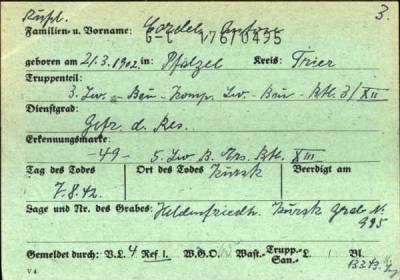 Rußl. 3.
Familien- u. Vorname: Cordel, G-C 176/0435
geboren am 21.3.1902 in: Pfalzel Kreis: Trier
Truppenteil:
3. Lw. - Bau - Komp. Lw. - Bau - Btl. 3/XII
Dienstgrad:
Gefr. d. Res.
Erkennungsmarke:
-49- 5. Lw. B. Ers. Btl. XIII
Tag des Todes Ort des Todes Kursk Beerdigt am
7.8.42.
Lage und Nr. des Grabes: Heldenfriedh. Kursk Grab Nr.
995
Gemeldet durch: V.L. 4 Ref. 1. W.G.O. Wast.- Trupp.- L. Vl.
San.-
V 4